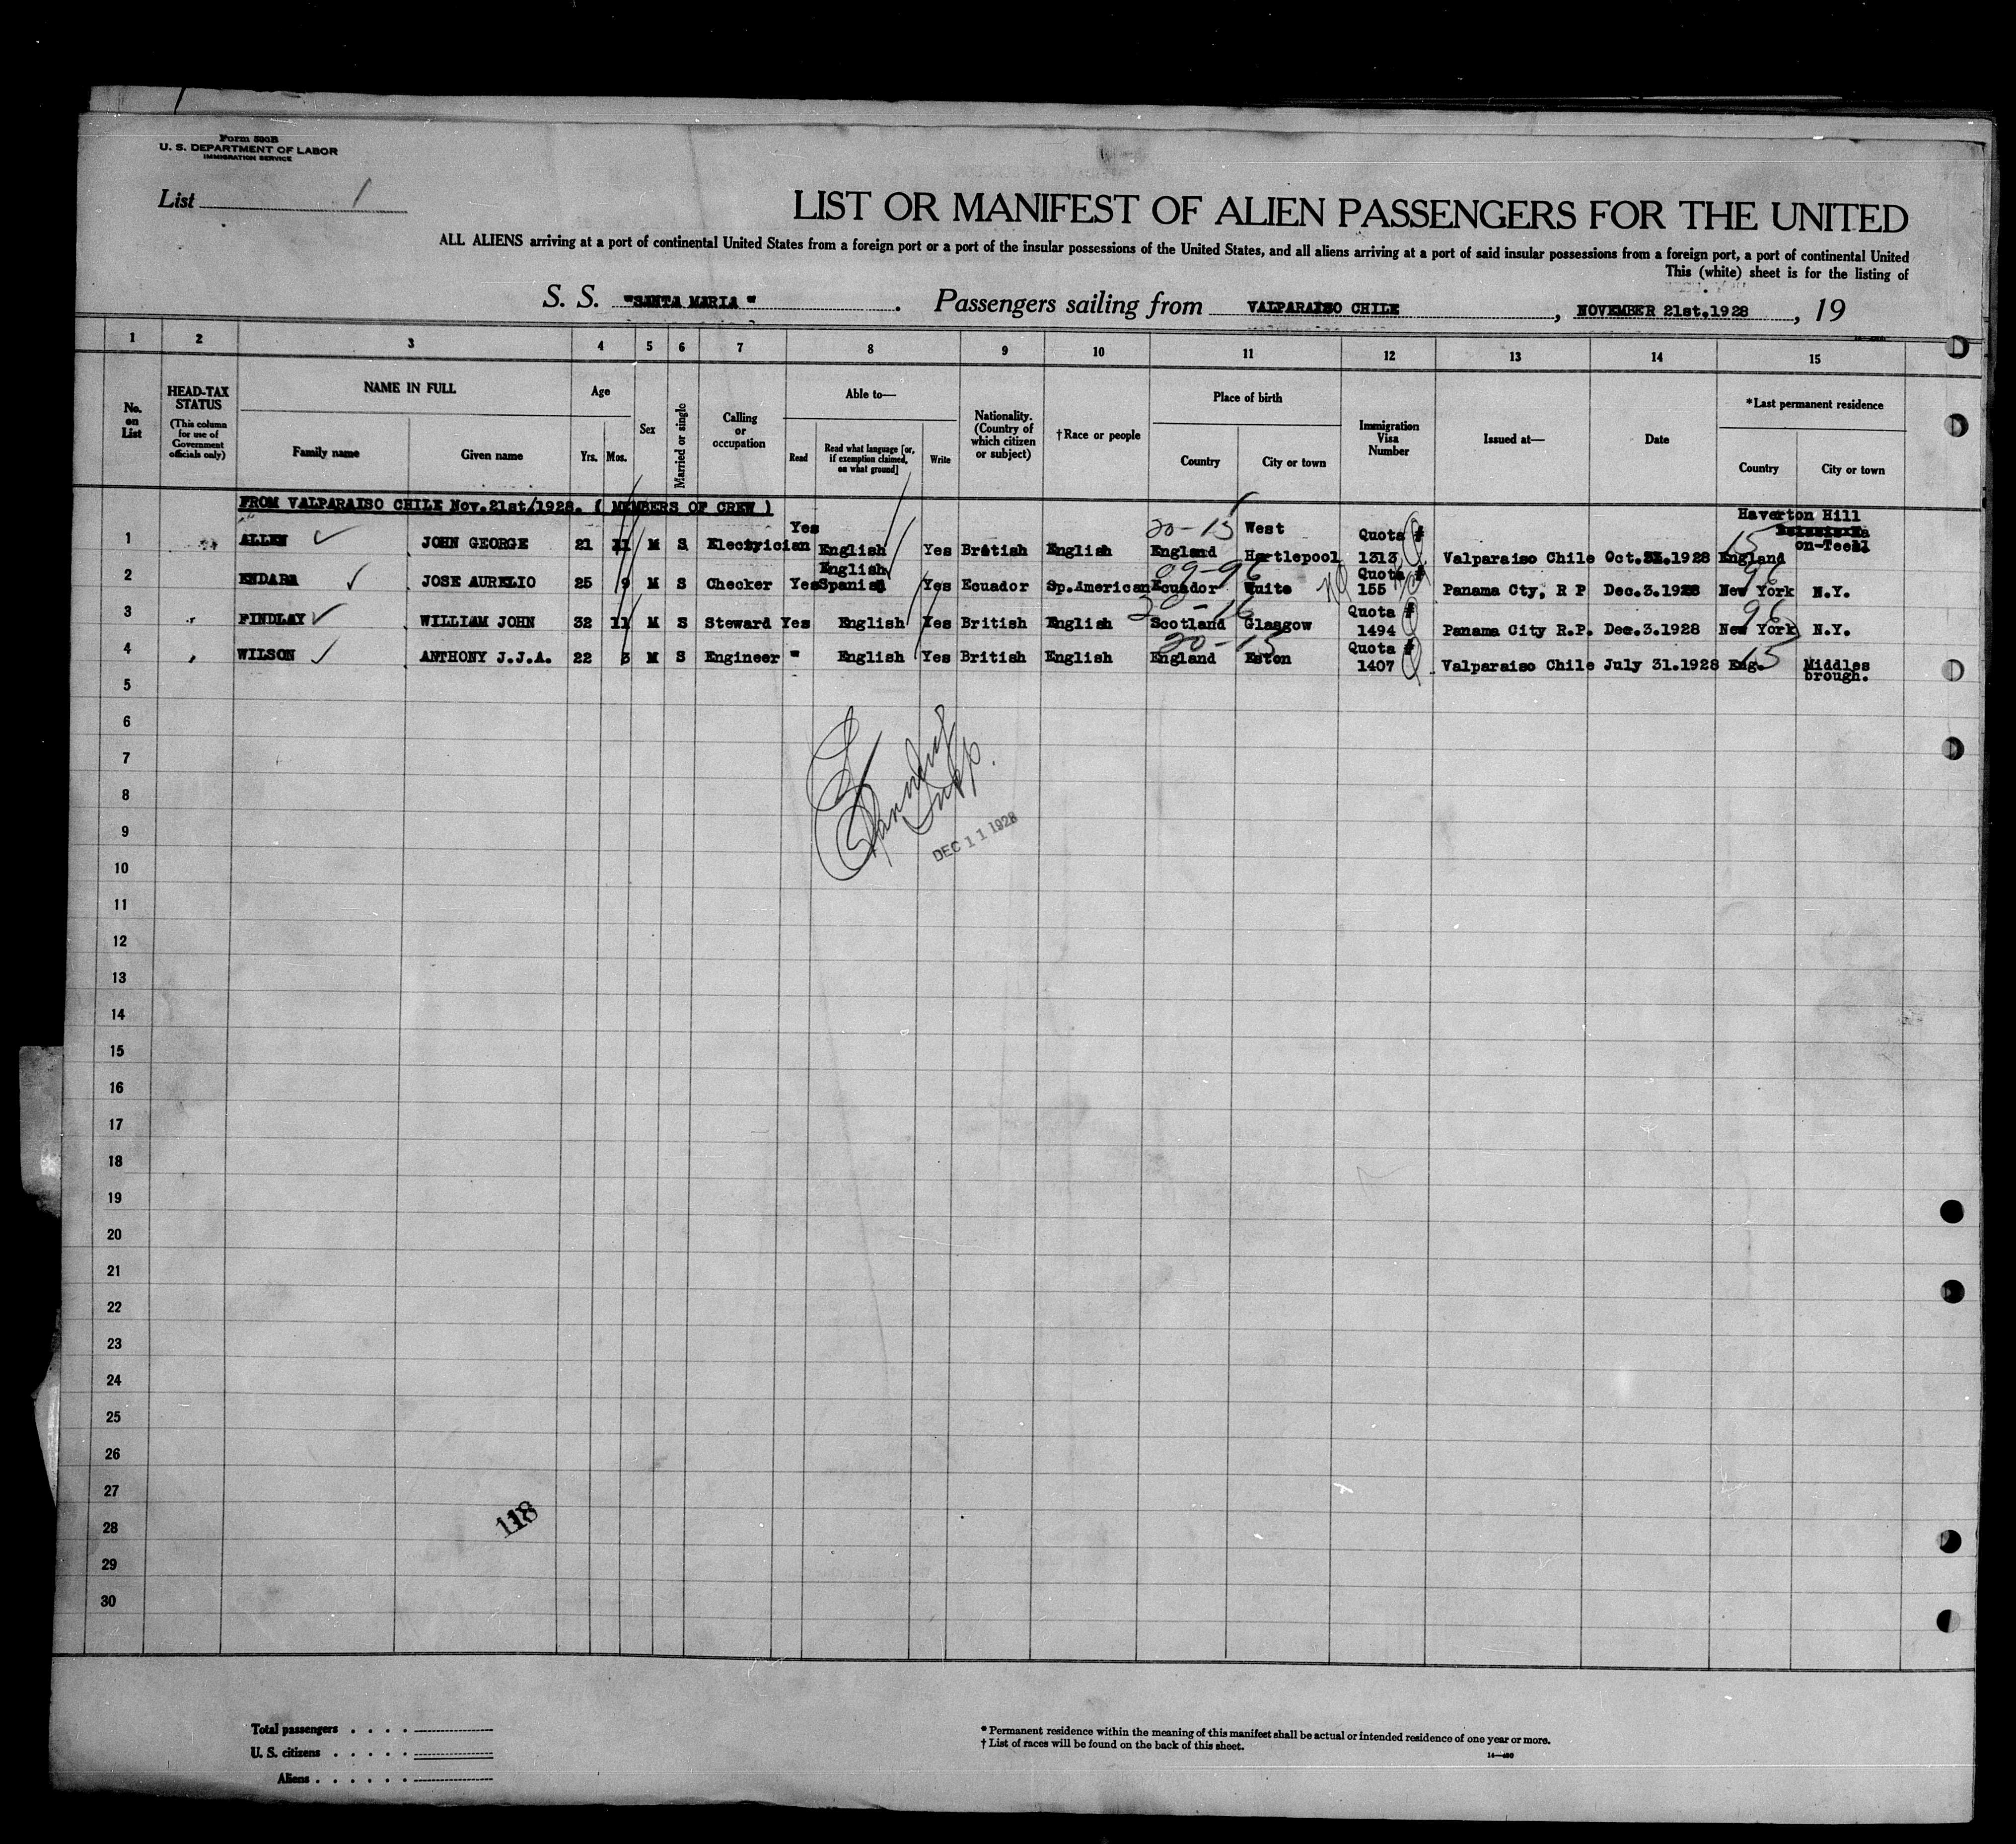 Form 500B
U. S. DEPARTMENT OF LABOR
IMMIGRATION SERVICE
List 1
LIST OR MANIFEST OF ALIEN PASSENGERS FOR THE UNITED
ALL ALIENS arriving at a port of continental United States from a foreign port or a port of the insular possessions of the United States, and all aliens arriving at a port of said insular possessions from a foreign port, a port of continental United
This (white) sheet is for the listing of
S. S. "SANTA MARIA" . Passengers sailing from VALPARAISO CHILE , NOVEMBER 21st.1928 , 19
1 2 3 4 5 6 7 8 9 10 11 12 13 14 15
No. on List
HEAD-TAX STATUS (This column for use of Government officials only)
NAME IN FULL
Family name Given name
Age
Yrs. Mos.
Sex
Married or single
Calling or occupation
Able to—
Read
Read what language [or, if exemption claimed, on what ground]
Write
Nationality. (Country of which citizen or subject)
†Race or people
Place of birth
Country City or town
Immigration Visa Number
Issued at—
Date
*Last permanent residence
Country City or town
FROM VALPARAISO CHILE Nov.21st/1928. ( MEMBERS OF CREW )
1 ALLEN JOHN GEORGE 21 11 M S Electrician Yes English Yes British English 20-15 England West Hartlepool Quota # 1313 Valparaiso Chile Oct. .1928 15 England Haverton Hill on-Tees
2 ENDARA JOSE AURELIO 25 9 M S Checker Yes English Spanish Yes Ecuador Sp.American 09-96 Ecuador Quito Quota # 155 Panama Cty, R P Dec.3.1928 96 New York N.Y.
3 FINDLAY WILLIAM JOHN 32 11 M S Steward Yes English Yes British English 20-16 Scotland Glasgow Quota # 1494 Panama City R.P. Dec.3.1928 96 New York N.Y.
4 WILSON ANTHONY J.J.A. 22 3 M S Engineer " English Yes British English 20-15 England Eston Quota # 1407 Valparaiso Chile July 31.1928 15 Eng. Middles brough.
5
6
7
8
9
10
11
12
13
14
15
16
17
18
19
20
21
22
23
24
25
26
27
28
29
30
Insp.
DEC 11 1928
118
Total passengers . . . .
U. S. citizens . . . . .
Aliens . . . . . .
* Permanent residence within the meaning of this manifest shall be actual or intended residence of one year or more.
† List of races will be found on the back of this sheet.
14—430